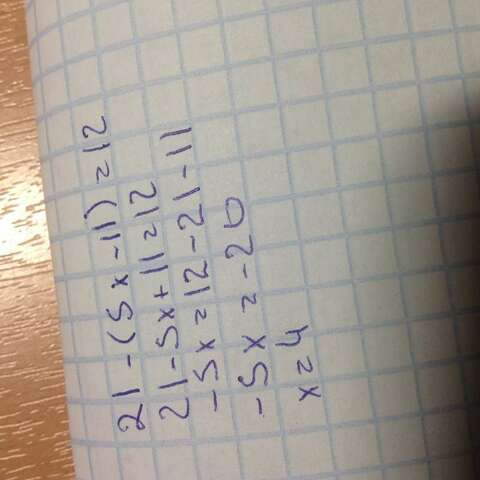 21-(5x-11)=12
21-5x+11=12
-5x=12-21-11
-5x=-20
x=4